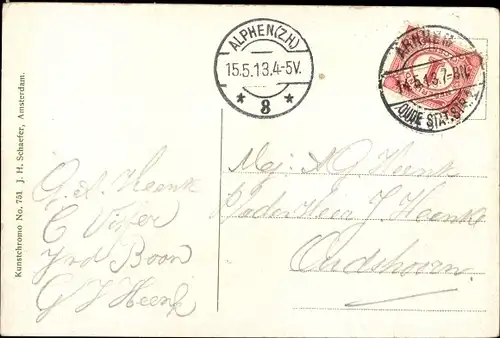 Kunstchromo No. 751 J. H. Schaefer, Amsterdam.
ALPHEN (Z.H)
15.5.13.4-5V.
* 8 *
ARNHEM
14.5.13.7-8N.
OUDE STAT.STR.
Mej: A G Heenk
p/a den Heer J Heenke
Oudshoorn
G. A. Heenk
C Visser
Boon
G J Heenk